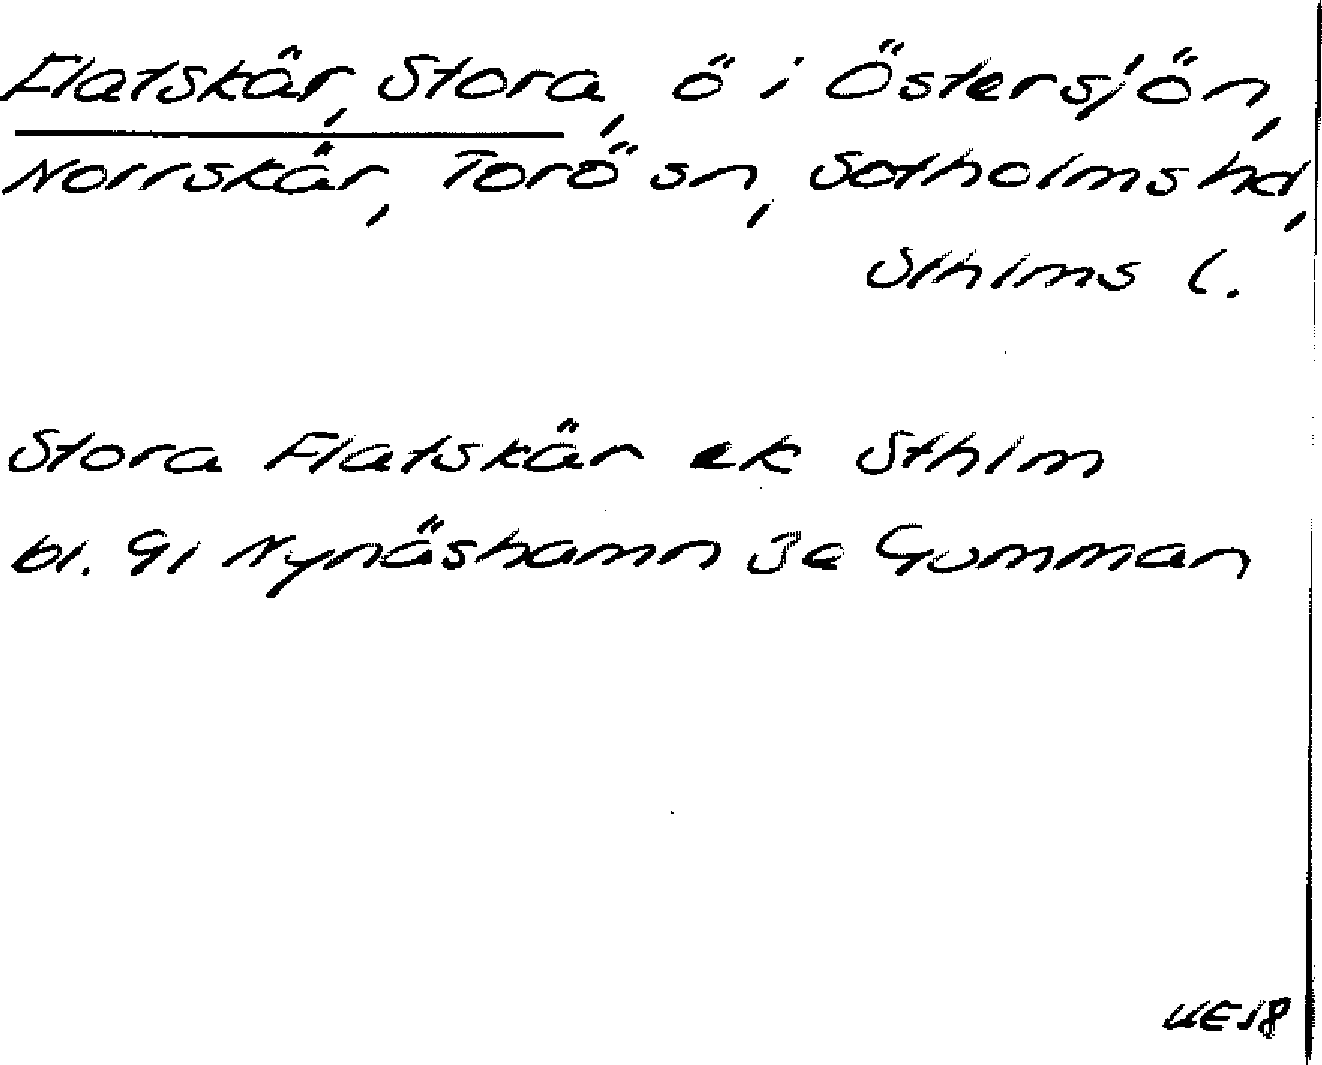 Flatskär, Stora, ö i Östersjön,
Norrskär, Torö sn, Sotholms hd,
Sthlms l.
Stora Flatskär ek Sthlm
bl. 91 Nynäshamn 3e Gumman